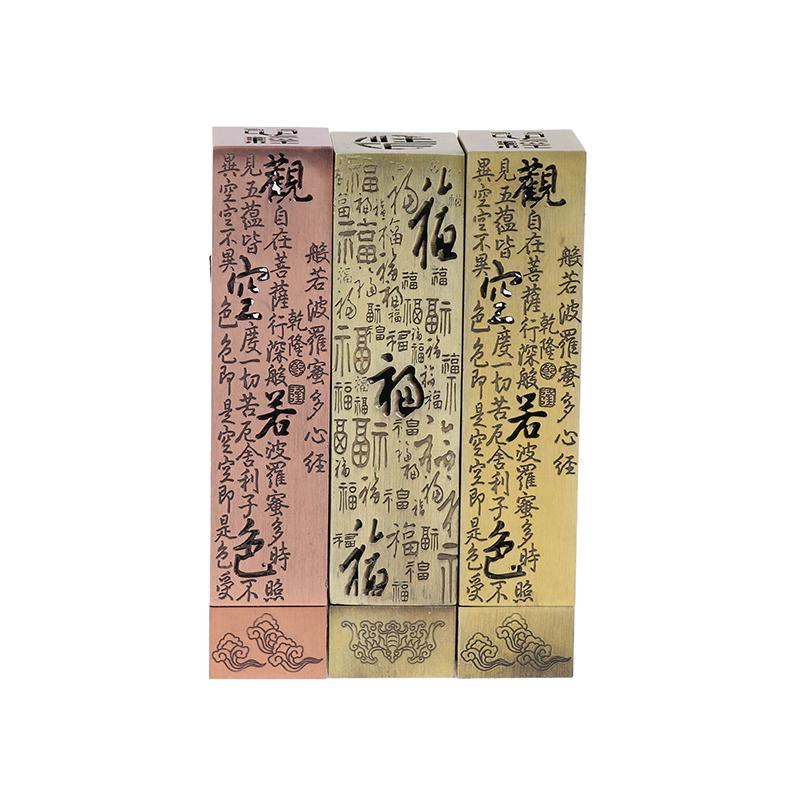 般若波羅蜜多心経
乾隆
觀自在菩薩行深般若波羅蜜多時照
見五蘊皆空度一切苦厄舍利子色不
異空空不異色色即是空空即是色受
福
福
福
般若波羅蜜多心経
乾隆
觀自在菩薩行深般若波羅蜜多時照
見五蘊皆空度一切苦厄舍利子色不
異空空不異色色即是空空即是色受